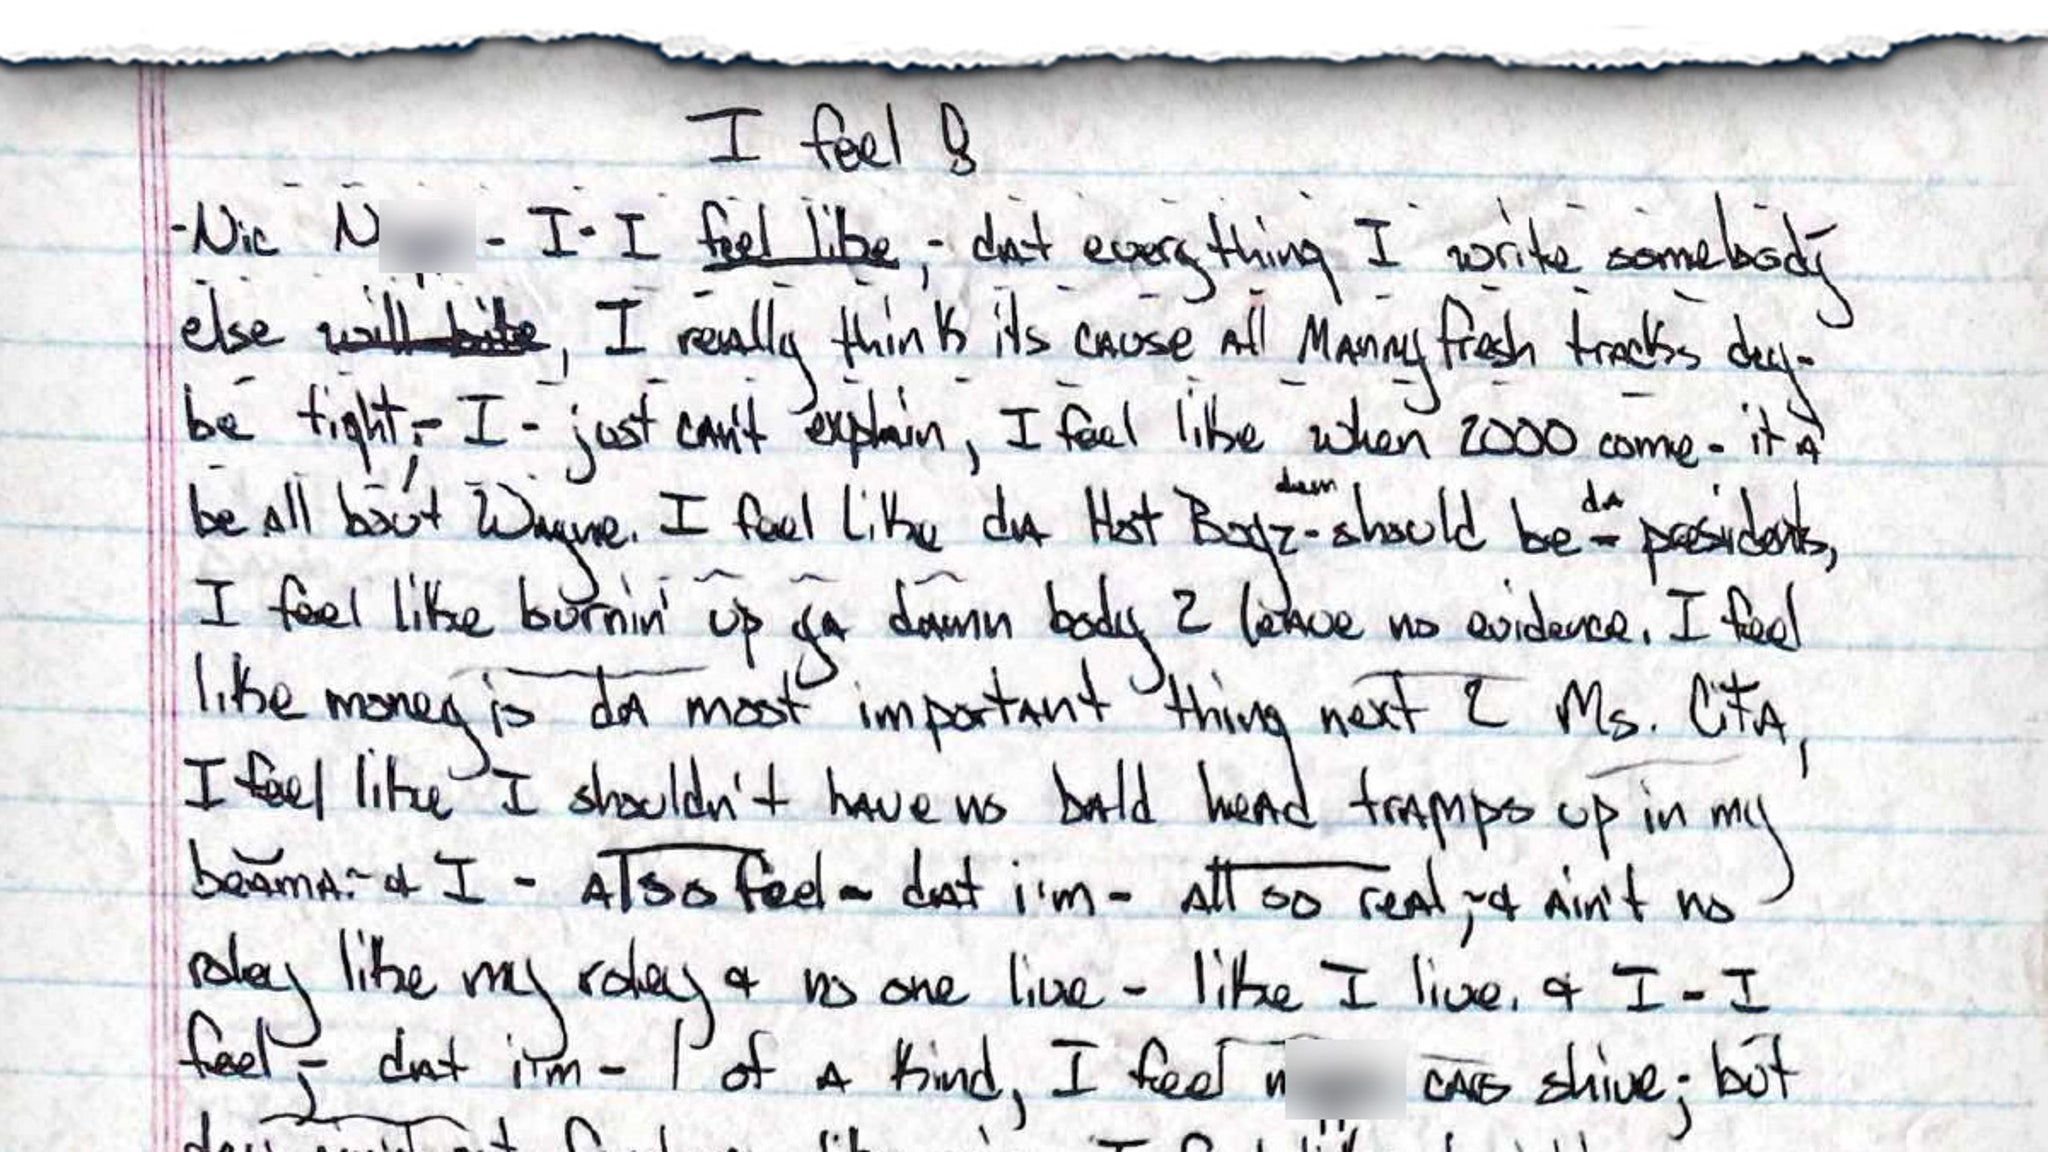 I feel
-Nic N - I-I feel like, - dat everything I write somebody
else will bite, I really think its cause all Manny fresh tracks dey-
be tight, - I - just can't explain, I feel like when 2000 come - it'a
be all bout Wayne. I feel like da Hot Boyz - dam should be - da presidents,
I feel like burnin' up ya damn body 2 leave no evidence. I feel
like money is da most important thing next 2 Ms. CitA,
I feel like I shouldn't have no bald head tramps up in my
beama. - & I - also feel - dat i'm - all so real, - & ain't no
roley like my roley & no one live - like I live. & I - I
feel, - dat i'm - 1 of a kind, I feel n cars shine; but